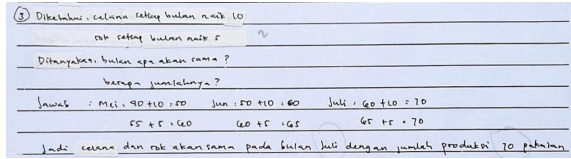 ③ Diketahui, celana setiap bulan naik 10
rok setiap bulan naik 5
Ditanyakan, bulan apa akan sama ?
berapa jumlahnya ?
Jawab : Mei : 40 + 10 = 50 Jun : 50 + 10 = 60 Juli : 60 + 10 = 70
55 + 5 = 60 60 + 5 = 65 65 + 5 = 70
Jadi celana dan rok akan sama pada bulan Juli dengan jumlah produksi 70 pakaian